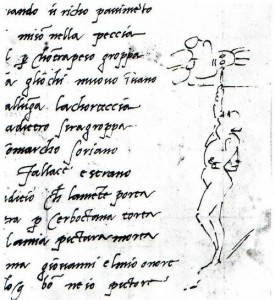 uando ũ richo pauimēto
misō nella peccia
p chōtrapeso groppa
a gliochi muouo ĩuano
allūga lachorteccia
adietro siragroppa
omarcho soriano
fallace e strano
udicio ch lamēte porta
tra p cerboctana torta
lamia pictura morta
ma giouanni elmio onore
bō ne io pictore